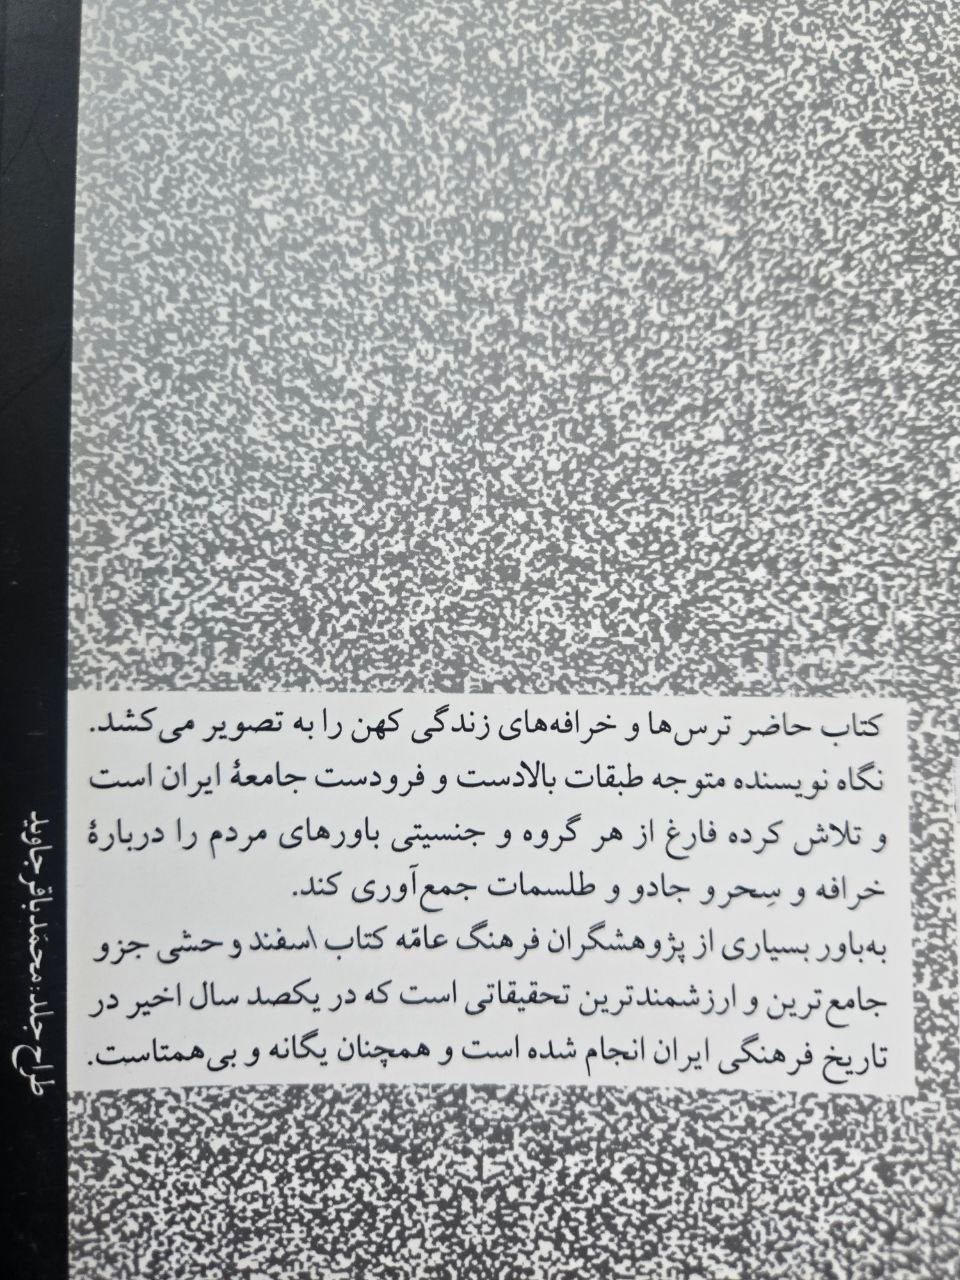 کتاب حاضر ترس‌ها و خرافه‌های زندگی کهن را به تصویر می‌کشد.
نگاه نویسنده متوجه طبقات بالادست و فرودست جامعهٔ ایران است
و تلاش کرده فارغ از هر گروه و جنسیتی باورهای مردم را دربارهٔ
خرافه و سِحر و جادو و طلسمات جمع‌آوری کند.
به‌باور بسیاری از پژوهشگران فرهنگ عامّه کتاب \سفند وحشی جزو
جامع‌ترین و ارزشمندترین تحقیقاتی است که در یکصد سال اخیر در
تاریخ فرهنگی ایران انجام شده است و همچنان یگانه و بی‌همتاست.
طراح جلد: محمّدباقر جاوید